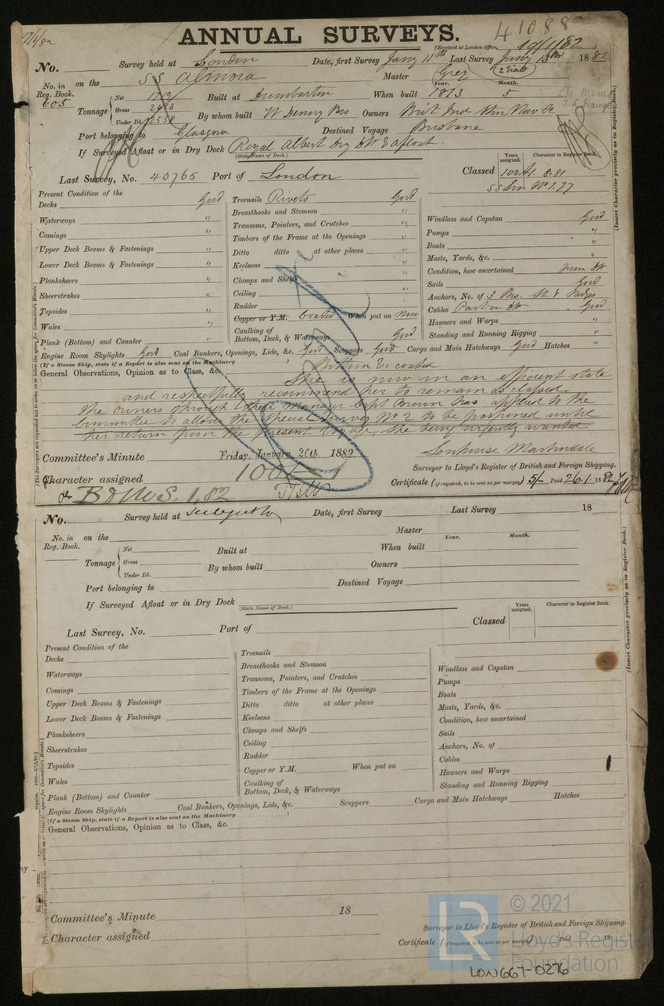 ANNUAL SURVEYS.
41088
(Received at London Office, 19/1/82)
No. Survey held at London Date, first Survey Jany 11th Last Survey Jany 1882
No. in Reg. Book. 605 on the SS Almora Master Grey
Year. Month.
Tonnage Net Gross Under Dk. Built at Dumbarton When built 1873 5
By whom built W Denny Bros Owners Brit Ind Stm Nav Co
Port belonging to Glasgow Destined Voyage Brisbane
If Surveyed Afloat or in Dry Dock Royal Albert Dry Dk & afloat
(State Name of Dock.)
Last Survey, No. 40765 Port of London Classed 100A1 8.81
Years assigned. Character in Register Book.
SS Lon No1.77
(Insert Character precisely as in Register Book.)
Present Condition of the
Decks Good
Waterways "
Comings "
Upper Deck Beams & Fastenings "
Lower Deck Beams & Fastenings "
Planksheers "
Sheerstrakes "
Topsides "
Wales "
Plank (Bottom) and Counter "
Treenails Rivets Good
Breasthooks and Stemson "
Transoms, Pointers, and Crutches "
Timbers of the Frame at the Openings "
Ditto ditto at other places "
Keelsons "
Clamps and Shelfs
Ceiling "
Rudder "
Copper or Y.M. Coated When put on now
Caulking of Bottom, Deck, & Waterways Good
Windlass and Capstan Good
Pumps "
Boats "
Masts, Yards, &c. "
Condition, how ascertained from Dk
Sails Good
Anchors, No. of 3 Brs, St & Kedge
Cables Part on Dk Good
Hawsers and Warps "
Standing and Running Rigging "
Engine Room Skylights Good Coal Bunkers, Openings, Lids, &c. Good Scuppers Good Cargo and Main Hatchways Good Hatches "
(If a Steam Ship, state if a Report is also sent on the Machinery
General Observations, Opinion as to Class, &c.
She is now in an efficient state
and respectfully recommend her to remain as classed.
The owners through their manager Capt has applied to the
Committee to allow the Special Survey No 2 to be postponed until
her return from the present voyage she being urgently wanted
Committee's Minute Friday, January 20th 1882
Character assigned 100A1
B&MS. 1,82
Surveyor to Lloyd's Register of British and Foreign Shipping.
Certificate (if required, to be sent as per margin) 5/- Paid 26.1.1882
No. Survey held at Date, first Survey Last Survey 18
No. in Reg. Book. on the Master
Year. Month.
Tonnage Net Gross Under Dk. Built at When built
By whom built Owners
Port belonging to Destined Voyage
If Surveyed Afloat or in Dry Dock
(State Name of Dock.)
Last Survey, No. Port of Classed
Years assigned. Character in Register Book.
(Insert Character precisely as in Register Book.)
Present Condition of the
Decks
Waterways
Comings
Upper Deck Beams & Fastenings
Lower Deck Beams & Fastenings
Planksheers
Sheerstrakes
Topsides
Wales
Plank (Bottom) and Counter
Treenails
Breasthooks and Stemson
Transoms, Pointers, and Crutches
Timbers of the Frame at the Openings
Ditto ditto at other places
Keelsons
Clamps and Shelfs
Ceiling
Rudder
Copper or Y.M. When put on
Caulking of Bottom, Deck, & Waterways
Windlass and Capstan
Pumps
Boats
Masts, Yards, &c.
Condition, how ascertained
Sails
Anchors, No. of
Cables
Hawsers and Warps
Standing and Running Rigging
Engine Room Skylights Coal Bunkers, Openings, Lids, &c. Scuppers Cargo and Main Hatchways Hatches
(If a Steam Ship, state if a Report is also sent on the Machinery
General Observations, Opinion as to Class, &c.
Committee's Minute 18
Character assigned
Surveyor to Lloyd's Register of British and Foreign Shipping.
Certificate (if required, to be sent as per margin) Paid 18
© 2021
LR Lloyd's Register
Foundation
LON667-0276